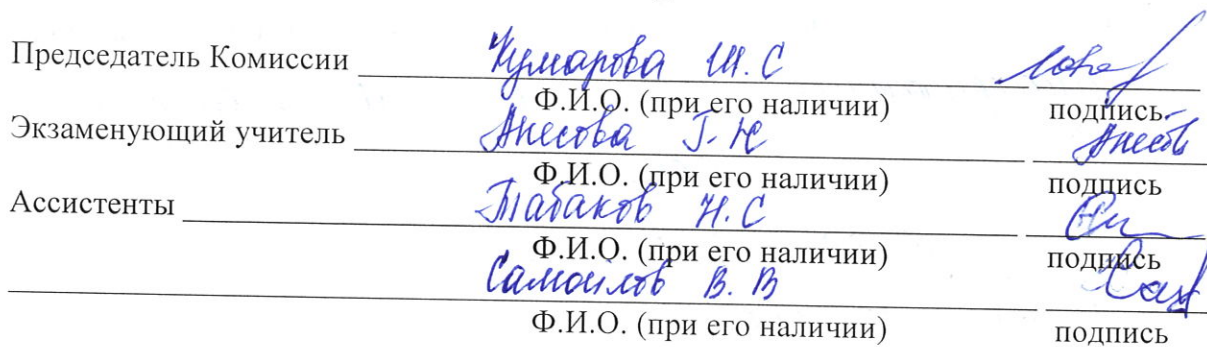 Председатель Комиссии Кумарова Ш. С
Ф.И.О. (при его наличии) подпись
Экзаменующий учитель Анесова Г. К
Ф.И.О. (при его наличии) подпись
Ассистенты Табаков Н. С
Ф.И.О. (при его наличии) подпись
Самоилов В. В
Ф.И.О. (при его наличии) подпись